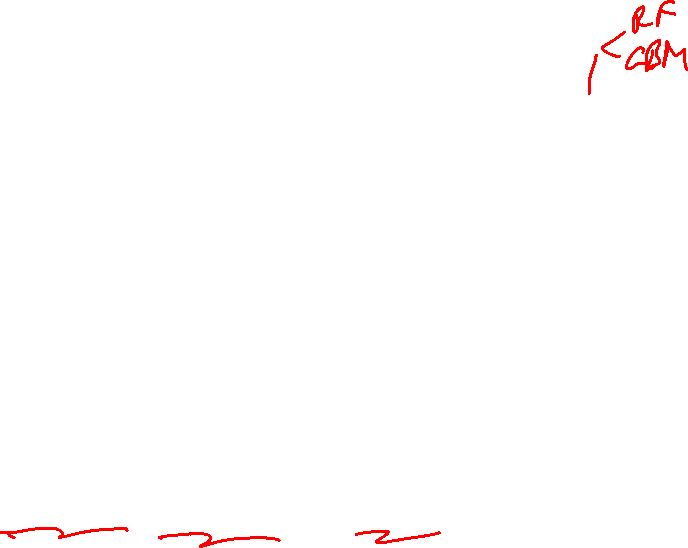 RF
GBM